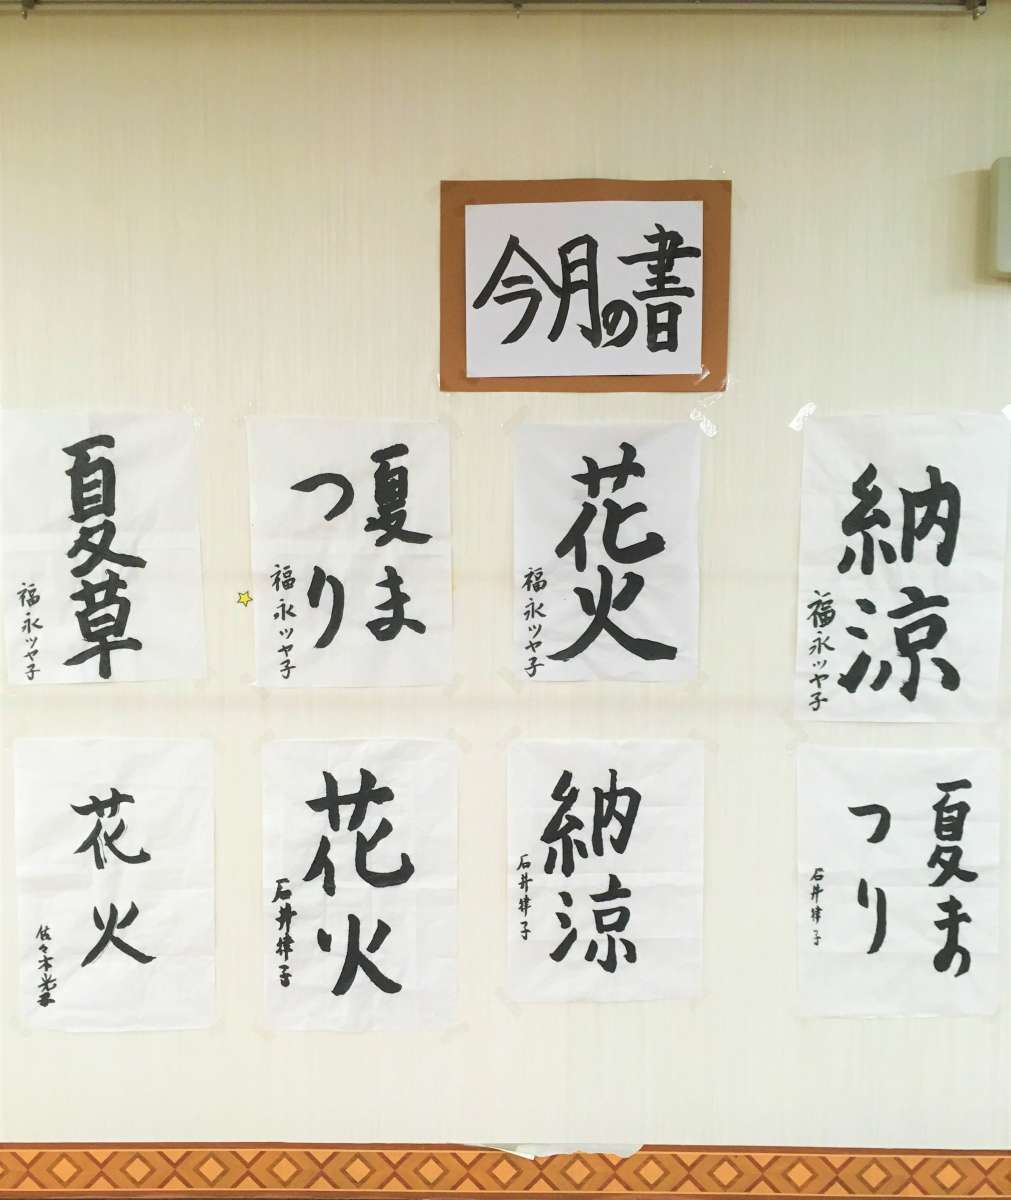 今月の書
納涼
福永ツヤ子
花火
福永ツヤ子
夏ま
つり
福永ツヤ子
夏草
福永ツヤ子
夏ま
つり
石井律子
納涼
石井律子
花火
石井律子
花火
佐々木光子